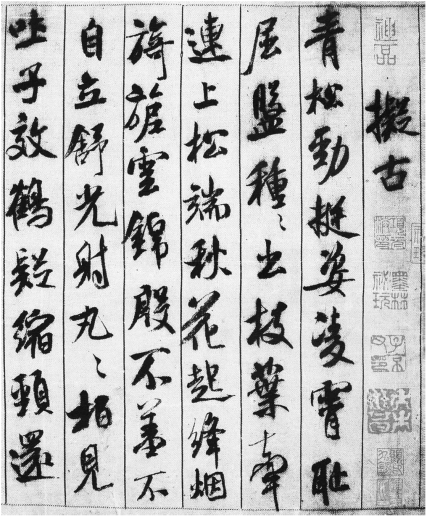 擬古
青松勁挺姿凌霄恥
屈盤種〻出枝葉牽
連上松端秋花起絳烟
旖旎雲錦殷不羞不
自立舒光射丸〻栢見
吐子效鶴疑縮頸還